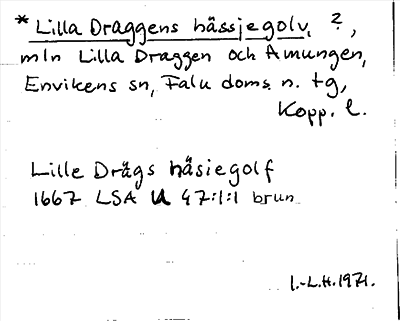 * Lilla Draggens hässjegolv, ?,
mln Lilla Draggen och Amungen,
Envikens sn, Falu doms. n. tg,
Kopp. l.
Lille Drägs häsiegolf
1667 LSA U 47:1:1 brun
I.-L.H. 1971.